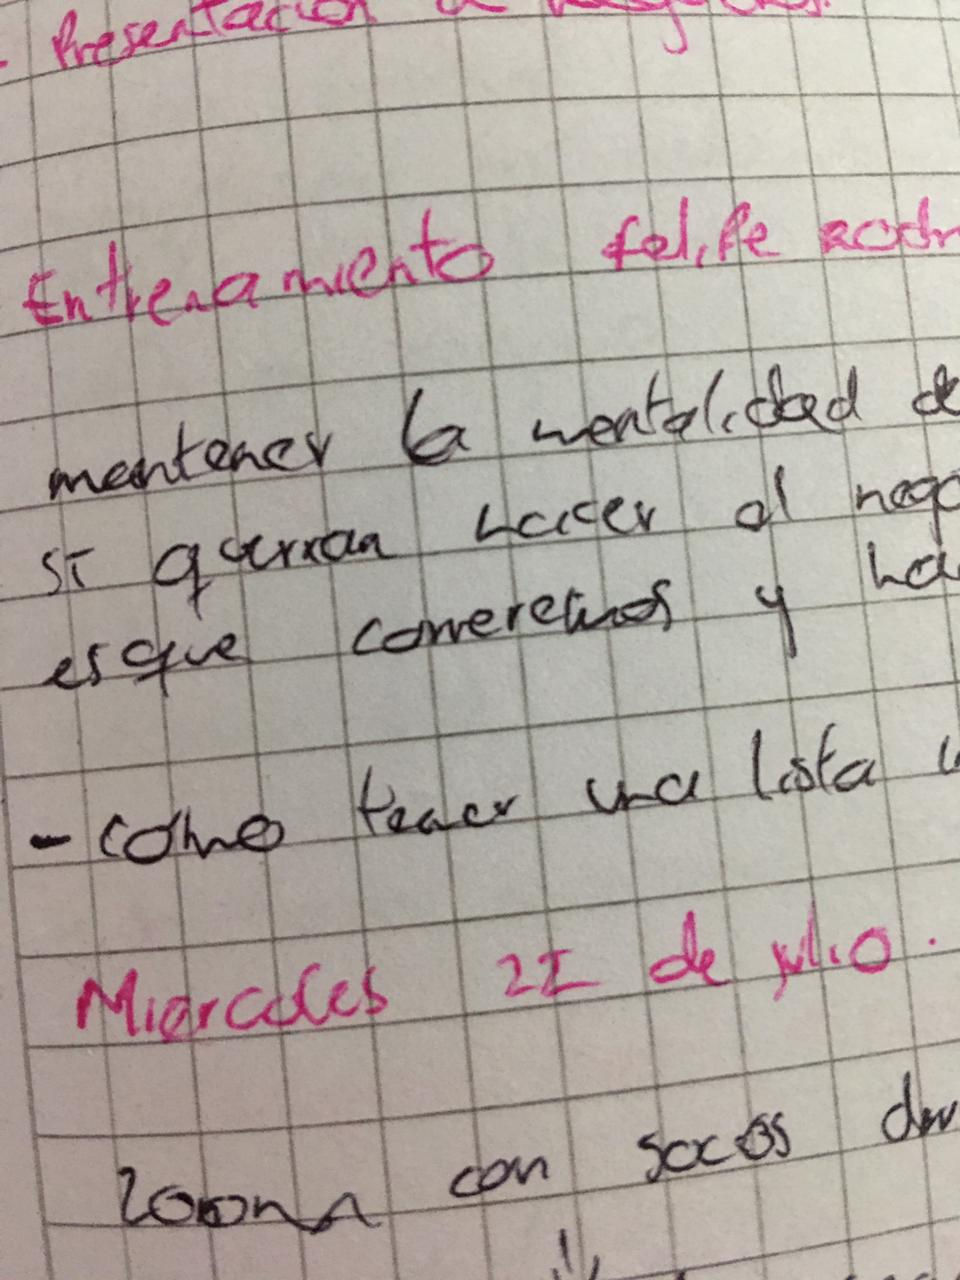 - Presentación
Entrenamiento felipe
mentener la mentalidad de
si querran hacer el nego
esque comeremos y ha
- como tener una lista
Miercoles 21 de julio.
zoom con socios